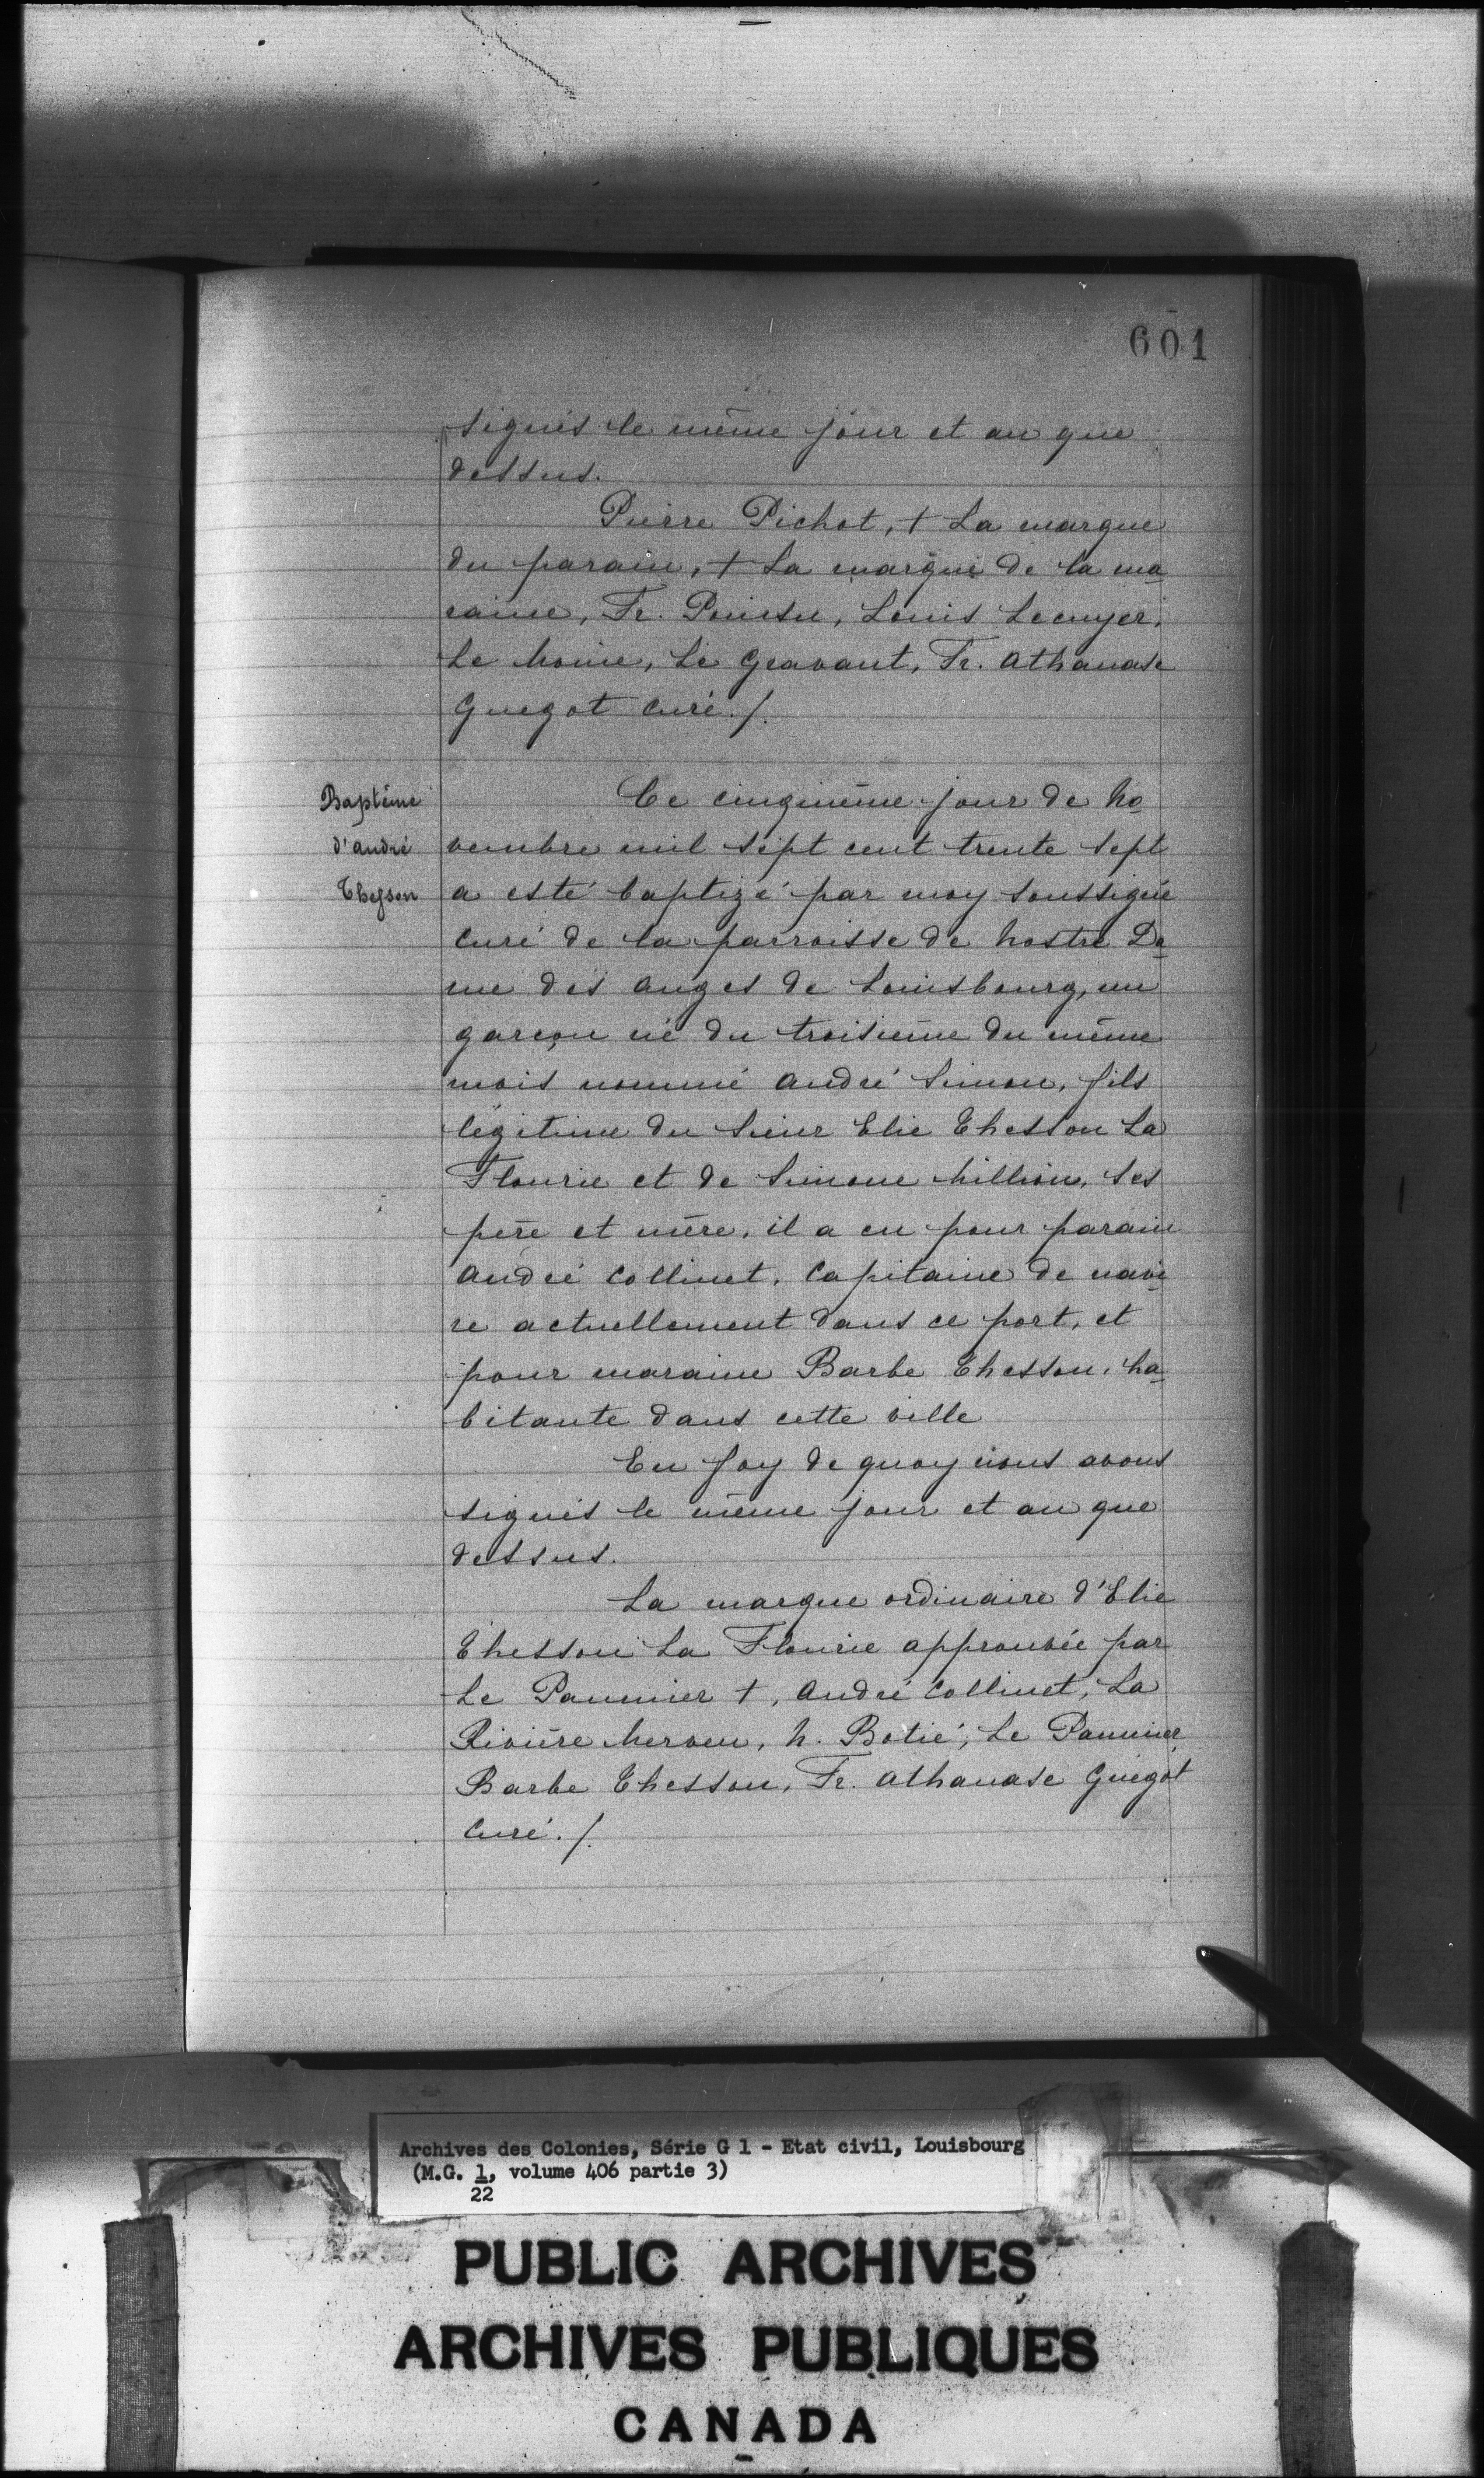 601
signés le même jour et an que
dessus.
Pierre Pichot, + La marque
du parain, + La marque de la ma
raine, Fr. Pointu, Louis Lecuyer,
Le Moine, Le Gravant, Fr. Athanase
Guegot Curé./.
Baptême
d'André
Thesson
Ce cinqième jour de No
vembre mil sept cent trente sept
a esté baptizé par moy soussigné
Curé de la parroisse de Nostre Da
me des Anges de Louisbourg, un
garçon né du troisième du même
mois nommé André Simon, fils
légitime du Sieur Elie Thesson La
Flourie et de Simone Million, ses
père et mère, il a eu pour parain
André Collinet, Capitaine de navi
re actuellement dans ce port, et
pour maraine Barbe Thesson, ha
bitante dans cette ville
En foy de quoy nous avons
signés le même jour et an que
dessus.
La marque ordinaire d'Elie
Thesson La Flourie approuvée par
Le Paumier +, André Collinet, La
Rivière Merven, N. Botié, Le Paumier
Barbe Thesson, Fr. Athanase Guégot
Curé./.
Archives des Colonies, Série G 1 - Etat civil, Louisbourg
(M.G. 1, volume 406 partie 3)
22
PUBLIC ARCHIVES
ARCHIVES PUBLIQUES
CANADA